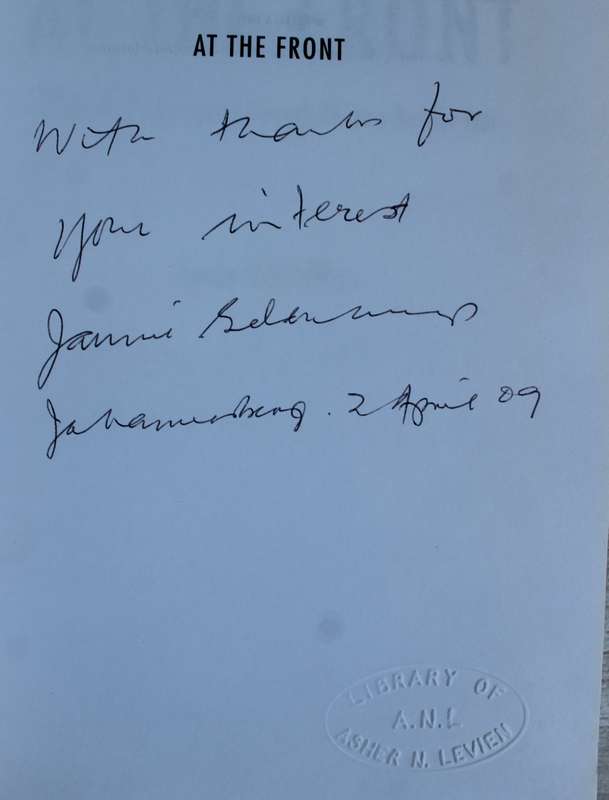 AT THE FRONT
With thanks for
your interest
Jannie Geldenhuys
Johannesburg. 2 April 09
LIBRARY OF
A.N.L
ASHER N. LEVIEN